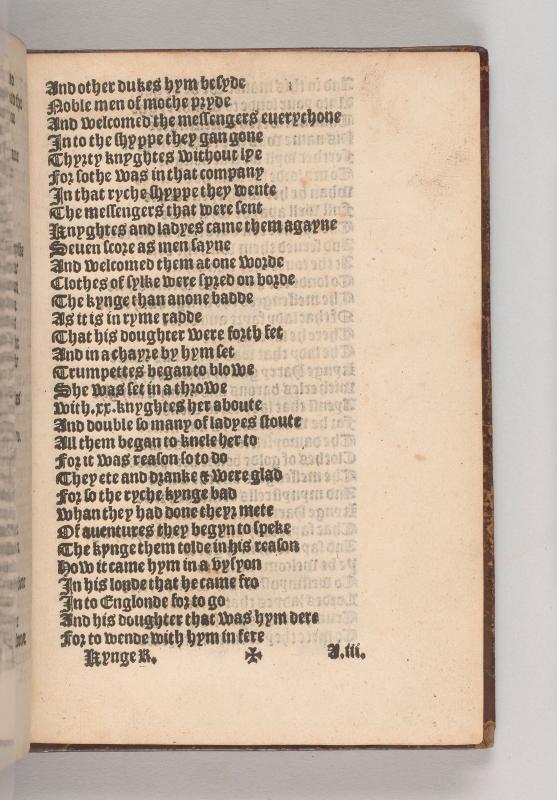 And other dukes hym besyde
Noble men of moche pryde
And welcomed the messengers euerychone
In to the shyppe they gan gone
Thyrty knyghtes without lye
For sothe was in that company
In that ryche shyppe they wente
The messengers that were sent
Knyghtes and ladyes came them agayne
Seuen score as men sayne
And welcomed them at one worde
Clothes of sylke were spred on borde
The kynge than anone badde
As it is in ryme radde
That his doughter were forth fet
And in a chayre by hym set
Trumpettes began to blowe
She was set in a throwe
with.xx.knyghtes her aboute
And double so many of ladyes stoute
All them began to knele her to
For it was reason so to do
They ete and dranke & were glad
For so the ryche kynge bad
whan they had done theyr mete
Of auentures they begyn to speke
The kynge them tolde in his reason
How it came hym in a vysyon
In his londe that he came fro
In to Englonde for to go
And his doughter that was hym dere
For to wende with hym in fere
Kynge R. ✠ A.iii.